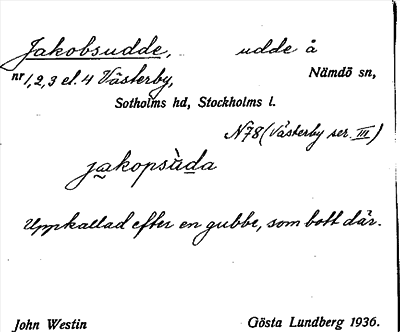 Jakobsudde, udde å
nr 1, 2, 3 el. 4 Västerby, Nämdö sn,
Sotholms hd, Stockholms l.
N78 (Västerby ser. III)
jakopsàda
Uppkallad efter en gubbe, som bott där.
John Westin Gösta Lundberg 1936.